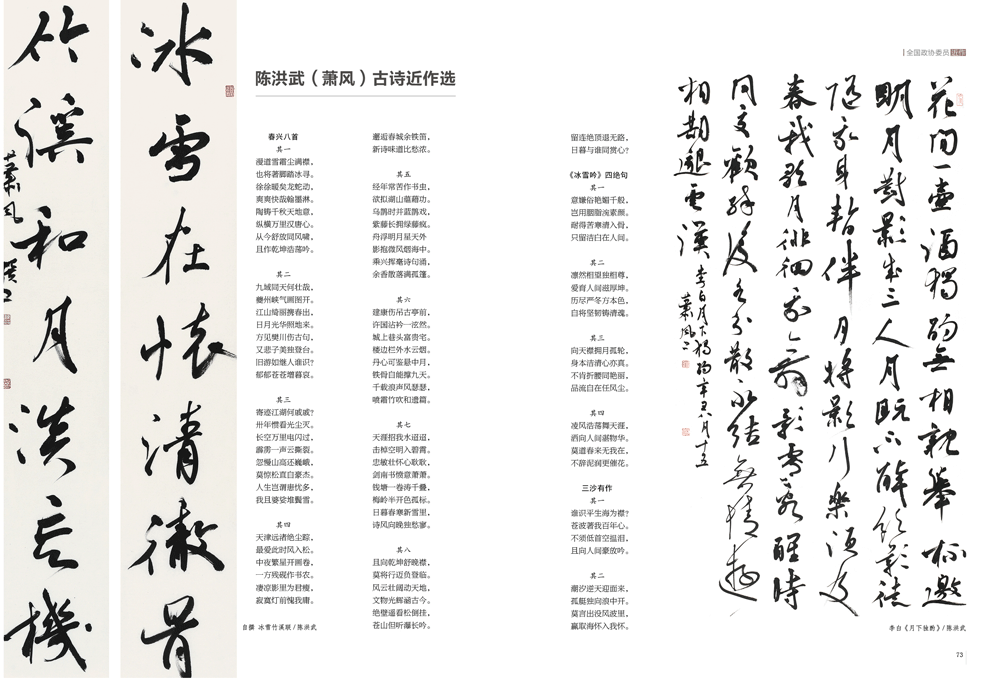 冰雪在懷清徹骨
竹溪和月淡忘機
蕭風
自撰 冰雪竹溪联/陈洪武
陈洪武（萧风）古诗近作选
春兴八首
其一
漫道雪霜尘满襟，
也将著脚踏冰寻。
徐徐暖矣龙蛇动，
爽爽快哉翰墨淋。
陶铸千秋天地意，
纵横万里汉唐心。
从今舒放同风啸，
且作乾坤浩荡吟。
其二
九域同天何壮哉，
夔州峡气画图开。
江山绮丽携春出，
日月光华照地来。
方见樊川伤古句，
又悲子美独登台。
旧游如继人谁识？
郁郁苍苍增暮哀。
其三
寄迹江湖何戚戚？
卅年惜看光尘灭。
长空万里电闪过，
霹雳一声云撕裂。
忽慢山高还巍峨，
莫惊松直自豪杰。
人生岂谓患忧多，
我且婆娑堆鬓雪。
其四
天津远渚绝尘踪，
最爱此时风入松。
中夜繁星开画卷，
一方残砚作书农。
凄凉影里为君瘦，
寂寞灯前愧我庸。
邂逅春城余铁笛，
新诗味道比愁浓。
其五
经年常苦作书虫，
欲拟湖山蕴藉功。
乌鹊时并蓝鹊戏，
紫藤长拥绿藤疯。
舟浮明月星天外
影抱微风烟海中。
乘兴挥毫诗句涌，
余香散落满孤篷。
其六
建康伤吊古亭前，
许国沾衿一泫然。
城上巷头富贵宅。
楼边栏外水云烟。
丹心可鉴悬中月，
铁骨自能撑九天。
千载浪声风瑟瑟，
喷霜竹吹和遗篇。
其七
天涯招我水迢迢，
击棹空明入碧霄。
忠敏壮怀心耿耿，
剑南书愤意萧萧。
钱塘一卷涛千叠，
梅岭半开色孤标。
日暮春寒新雪里，
诗风向晚独愁寥。
其八
且向乾坤舒晚襟，
莫将行迈负登临。
风云壮阔动天地，
文物光辉诵古今。
绝壁遥看松倒挂，
苍山但听瀑长吟。
留连绝顶退无路，
日暮与谁同赏心？
《冰雪吟》四绝句
其一
意嫌俗艳媚千般，
岂用胭脂浼素颜。
耐得苦寒清入骨，
只留洁白在人间。
其二
凛然相望独相尊，
爱育人间滋厚坤。
历尽严冬方本色，
自将坚韧铸清魂。
其三
向天襟拥月孤轮，
身本洁清心亦真。
不肯折腰同艳丽，
品流自在任风尘。
其四
凌风浩荡舞天涯，
洒向人间湛物华。
莫道春来无我在，
不辞泥润更催花。
三沙有作
其一
谁识平生海为襟？
苍波著我百年心。
不须低首空揾泪，
且向人间豪放吟。
其二
潮汐逆天迎面来，
孤艇独向浪中开。
莫言出没风波里，
赢取海怀入我怀。
全国政协委员 近作
花間一壺酒獨酌無相親舉杯邀
明月對影成三人月既不解飲影徒
隨我身暫伴月將影行樂須及
春我歌月徘徊我舞影零亂醒時
同交歡醉後各分散永結無情遊
相期邈雲漢
李白月下獨酌辛丑八月十五
蕭風
李白《月下独酌》/陈洪武
73